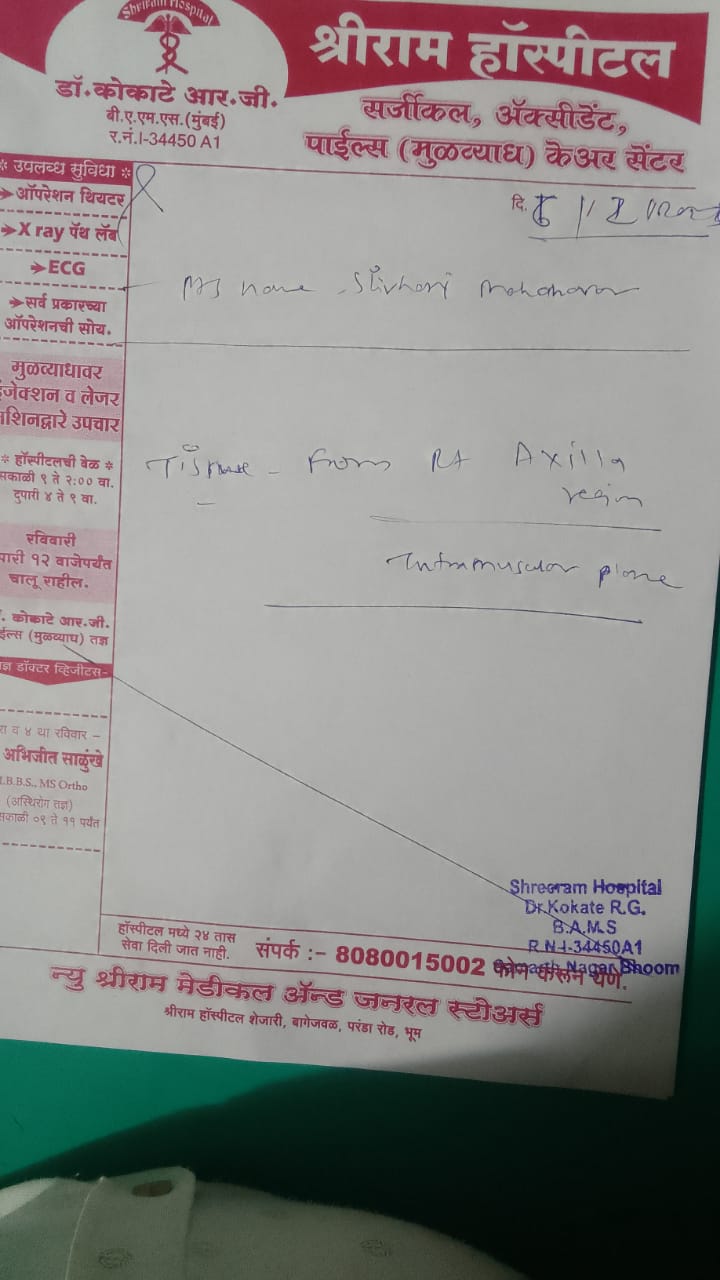 Shriram Hospital
श्रीराम हॉस्पीटल
डॉ.कोकाटे आर.जी.
बी.ए.एम.एस.(मुंबई)
र.नं.I-34450 A1
सर्जीकल, ॲक्सीडेंट,
पाईल्स (मुळव्याध) केअर सेंटर
* उपलब्ध सुविधा *
➔ऑपरेशन थियटर
➔X ray पॅथ लॅब
➔ECG
➔सर्व प्रकारच्या
ऑपरेशनची सोय.
मुळव्याधावर
ंजेक्शन व लेजर
शिनद्वारे उपचार
* हॉस्पीटलची वेळ *
सकाळी ९ ते २:०० वा.
दुपारी ४ ते ९ वा.
रविवारी
पारी १२ वाजेपर्यंत
चालू राहील.
. कोकाटे आर.जी.
ईल्स (मुळव्याध) तज्ञ
ज्ञ डॉक्टर व्हिजीटस-
रा व ४ था रविवार –
अभिजीत साळुंखे
.B.B.S., MS Ortho
(अस्थिरोग तज्ञ)
सकाळी ०९ ते ११ पर्यंत
दि.
name
Tissue - From Rt Axilla
region
Intramuscular plane
Shreeram Hospital
Dr.Kokate R.G.
B.A.M.S
R.N-I-34450A1
Nagar Bhoom
हॉस्पीटल मध्ये २४ तास
सेवा दिली जात नाही.
संपर्क :- 8080015002 फोन करून येणे.
न्यु श्रीराम मेडीकल ॲन्ड जनरल स्टोअर्स
श्रीराम हॉस्पीटल शेजारी, बागेजवळ, परंडा रोड, भूम